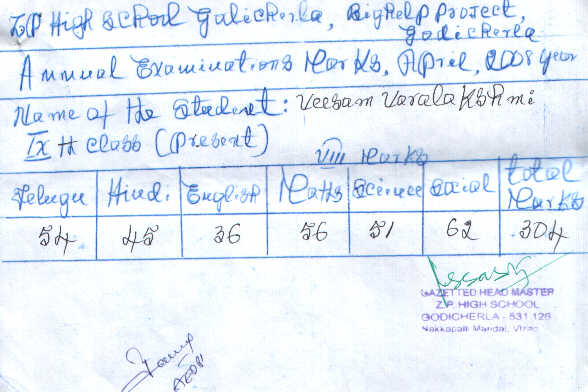 ZP High School Godicherla, BigHelp Project,
Godicherla
Annual Examinations Marks, April, 2008 year
Name of the Student: Veesam Varalakshmi
IX th class (Present)
VIII Marks
Telugu Hindi English Maths Science Social total Marks
54 45 36 56 51 62 304
GAZETTED HEAD MASTER
Z.P. HIGH SCHOOL
GODICHERLA - 531 126
Nakkapalli Mandal,